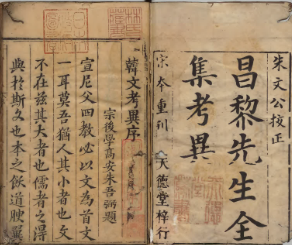 朱文公校正
昌黎先生全
集考異
宋本重刊
天德堂梓行
韓文考異序
宗後學高安朱吾弼題
宣尼父四教必以文為首文
一耳莫吾猶人其小者也文
不在茲其大者也儒者之得
與於斯文也木之飲道腴翼